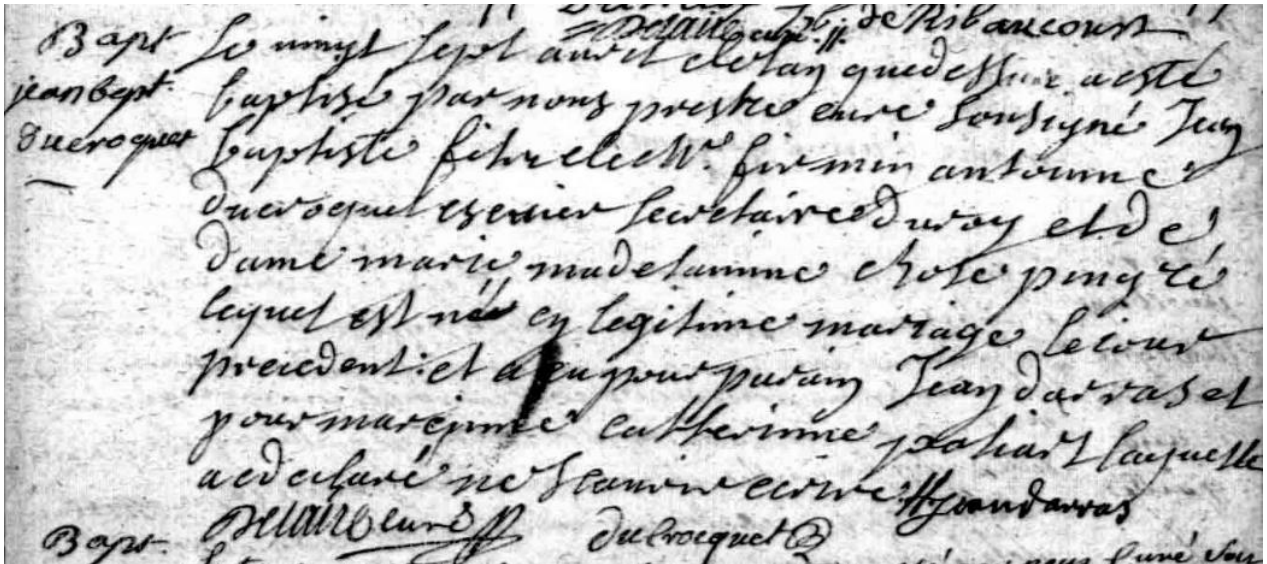 Delattre curé //. de Ribaucourt
Bapt Le vingt sept avril de lan que dessus a esté
jean bapt. baptisé par nous prestre curé soussigné Jean
ducroquet baptiste fils de Mr. firmin antoinne
ducroquet escuier secretaire du roy et de
dame marie madelainne pingré
lequel est né en legitime mariage le jour
precedent. et a eu pour parain Jean darras et
pour mareinne catherinne laquelle
a declaré ne scavoir ecrire // Jean darras
curé ducrocquet
Bapt.